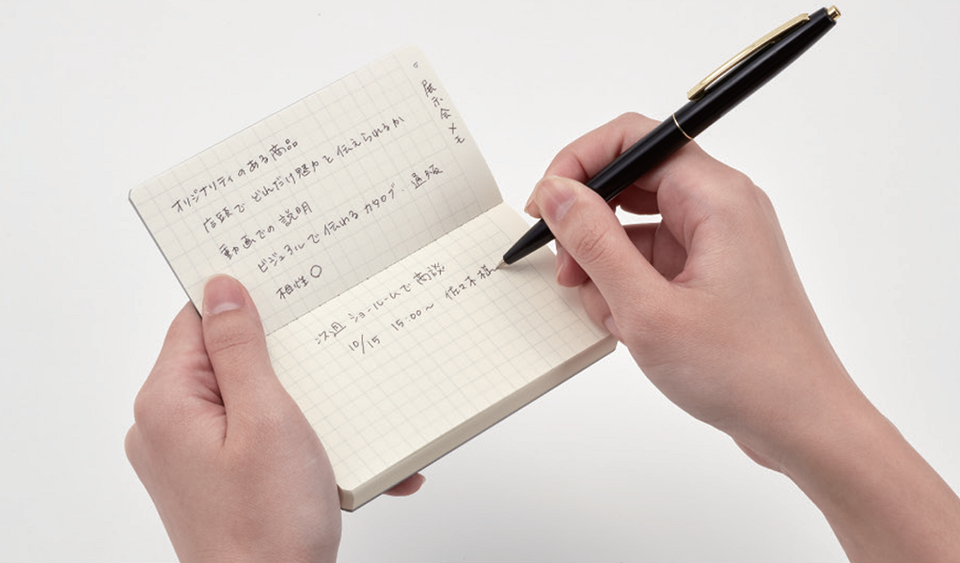 展示会メモ
オリジナリティのある商品
店頭でどれだけ魅力と伝えられるか
動画での説明
ビジュアルで伝わるカタログ
相性○
次週 ショールームで商談
10/15 15:00〜 佐々木様